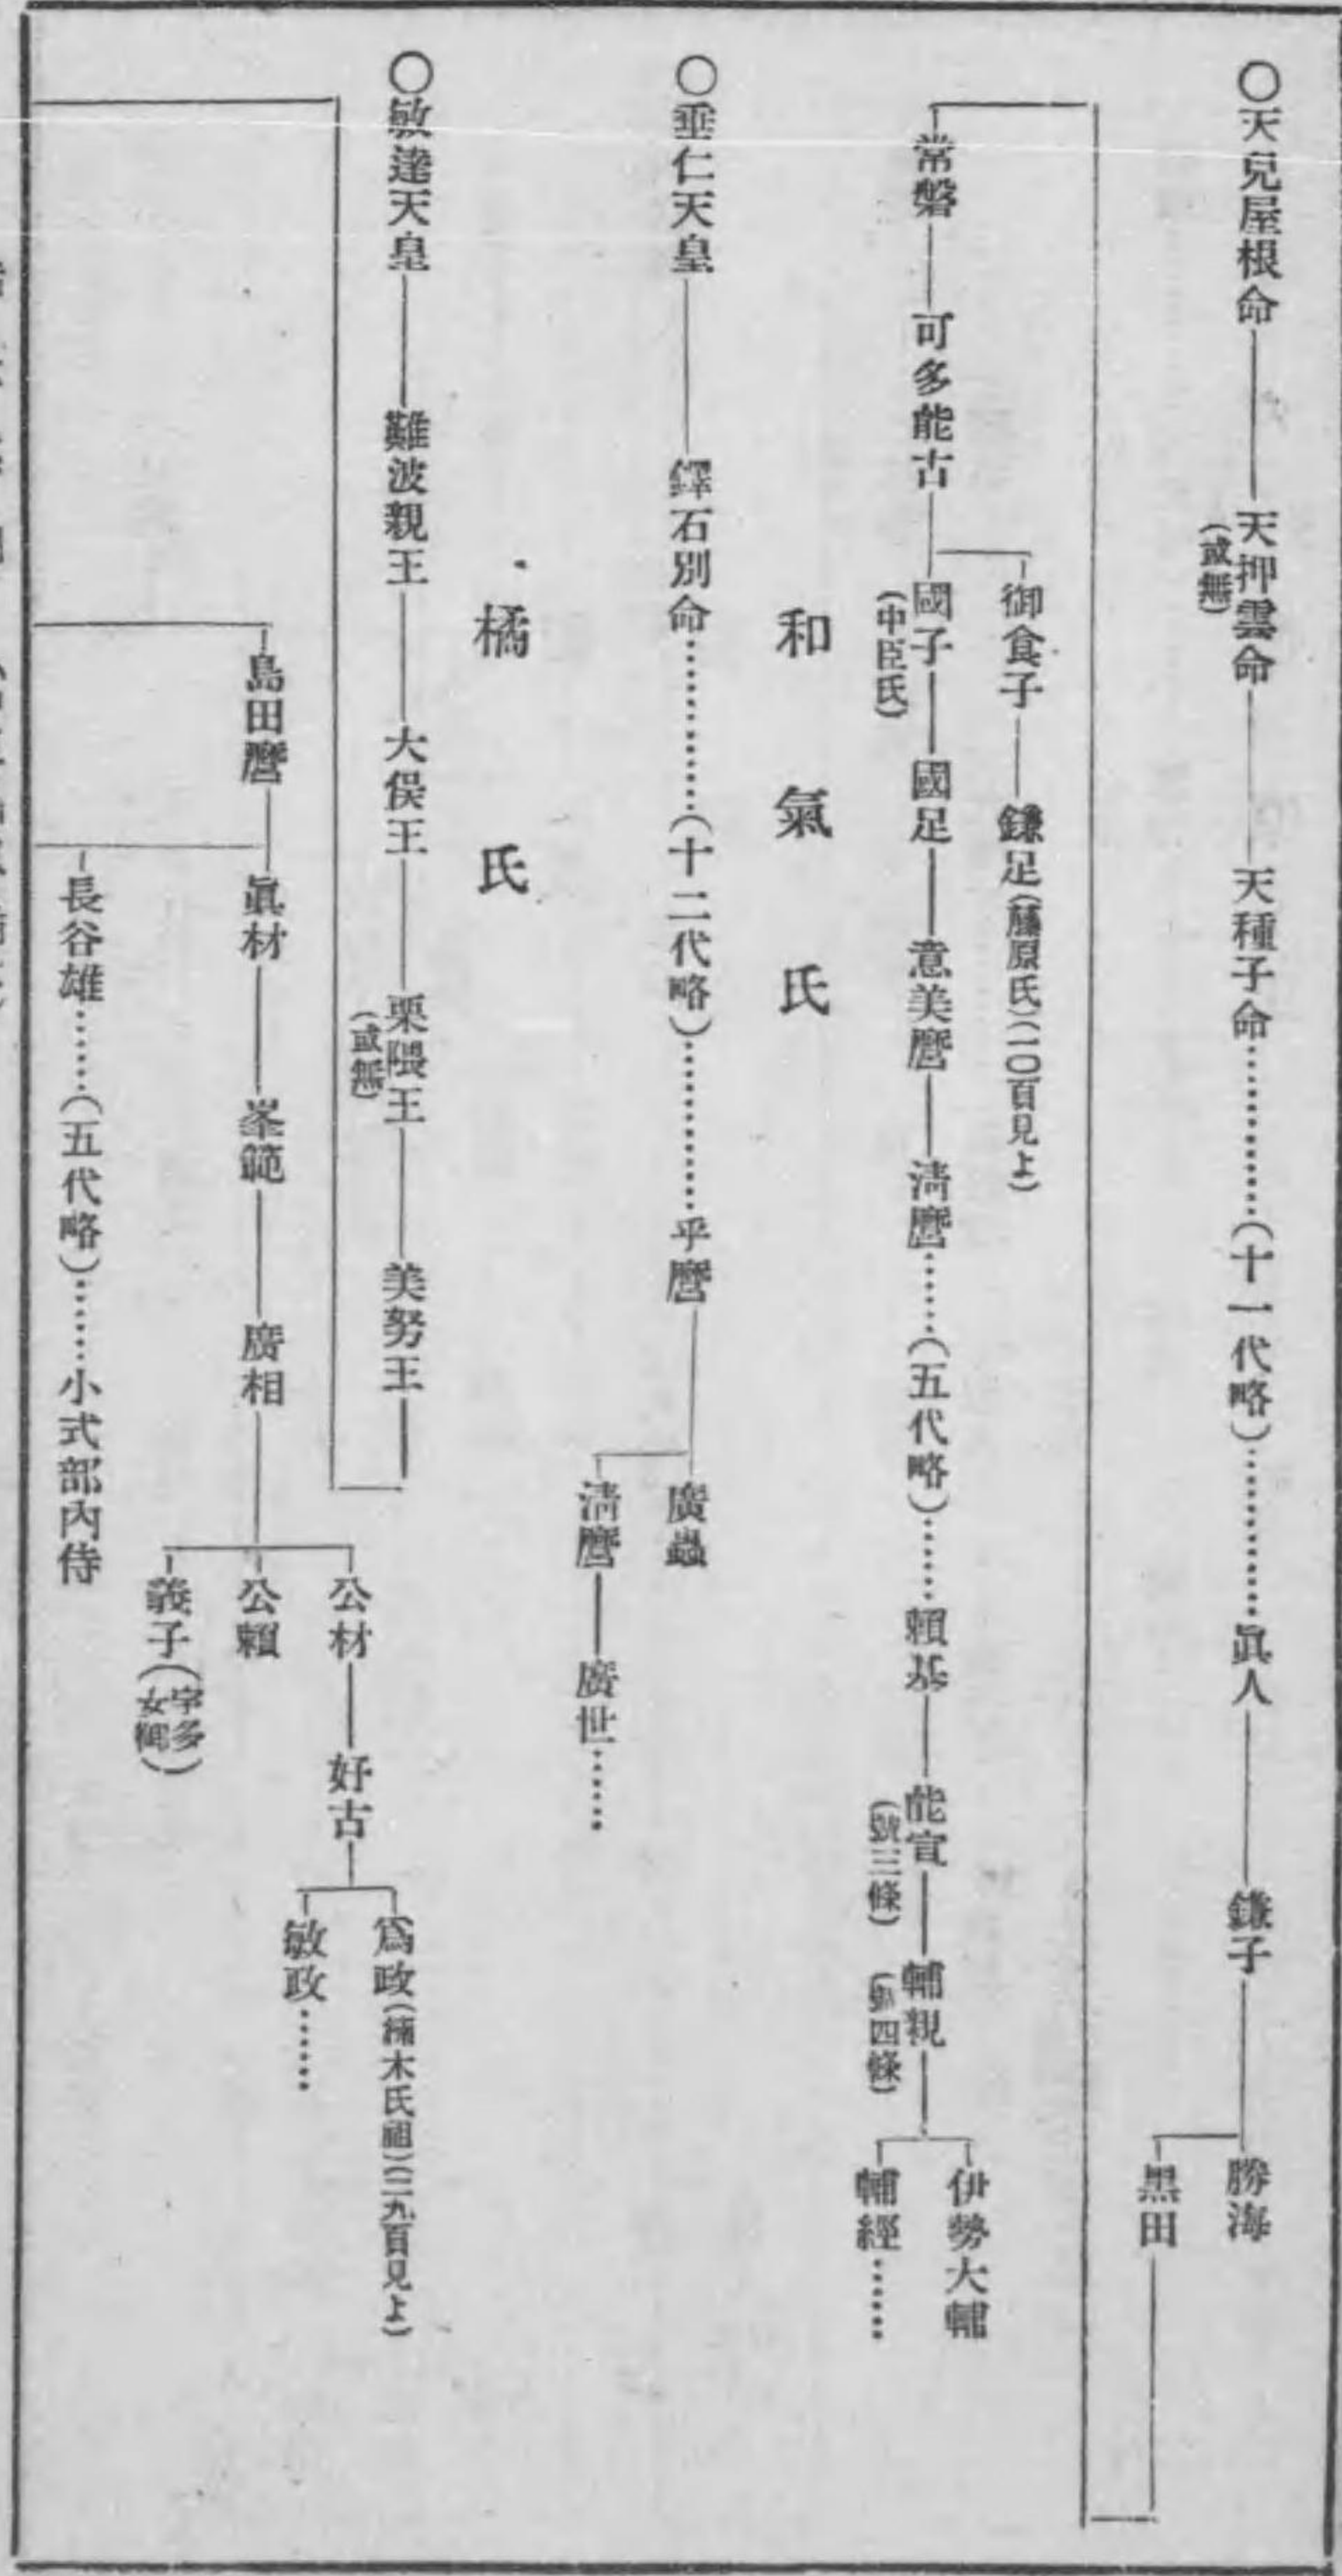 〇天兒屋根命
天押雲命
(或無)
天種子命…………(十一代略)…………眞人
鎌子
勝海
黒田
常磐
可多能古
御食子
鎌足(藤原氏)(一〇頁見よ)
國子
(中臣氏)
國足
意美麿
淸麿……(五代略)……賴基
能宣
(號三條)
輔親
(號四條)
伊勢大輔
輔經……
和氣氏
〇垂仁天皇
鐸石別命…………(十二代略)…………乎麿
廣蟲
淸麿
廣世……
橘氏
〇敏達天皇
難波親王
大俣王
栗隈王
(或無)
美努王
島田麿
眞材
峯範
廣相
公材
好古
爲政(楠木氏祖)(二九頁見よ)
敏政……
公賴
義子(宇多女御)
長谷雄……(五代略)……小式部內侍